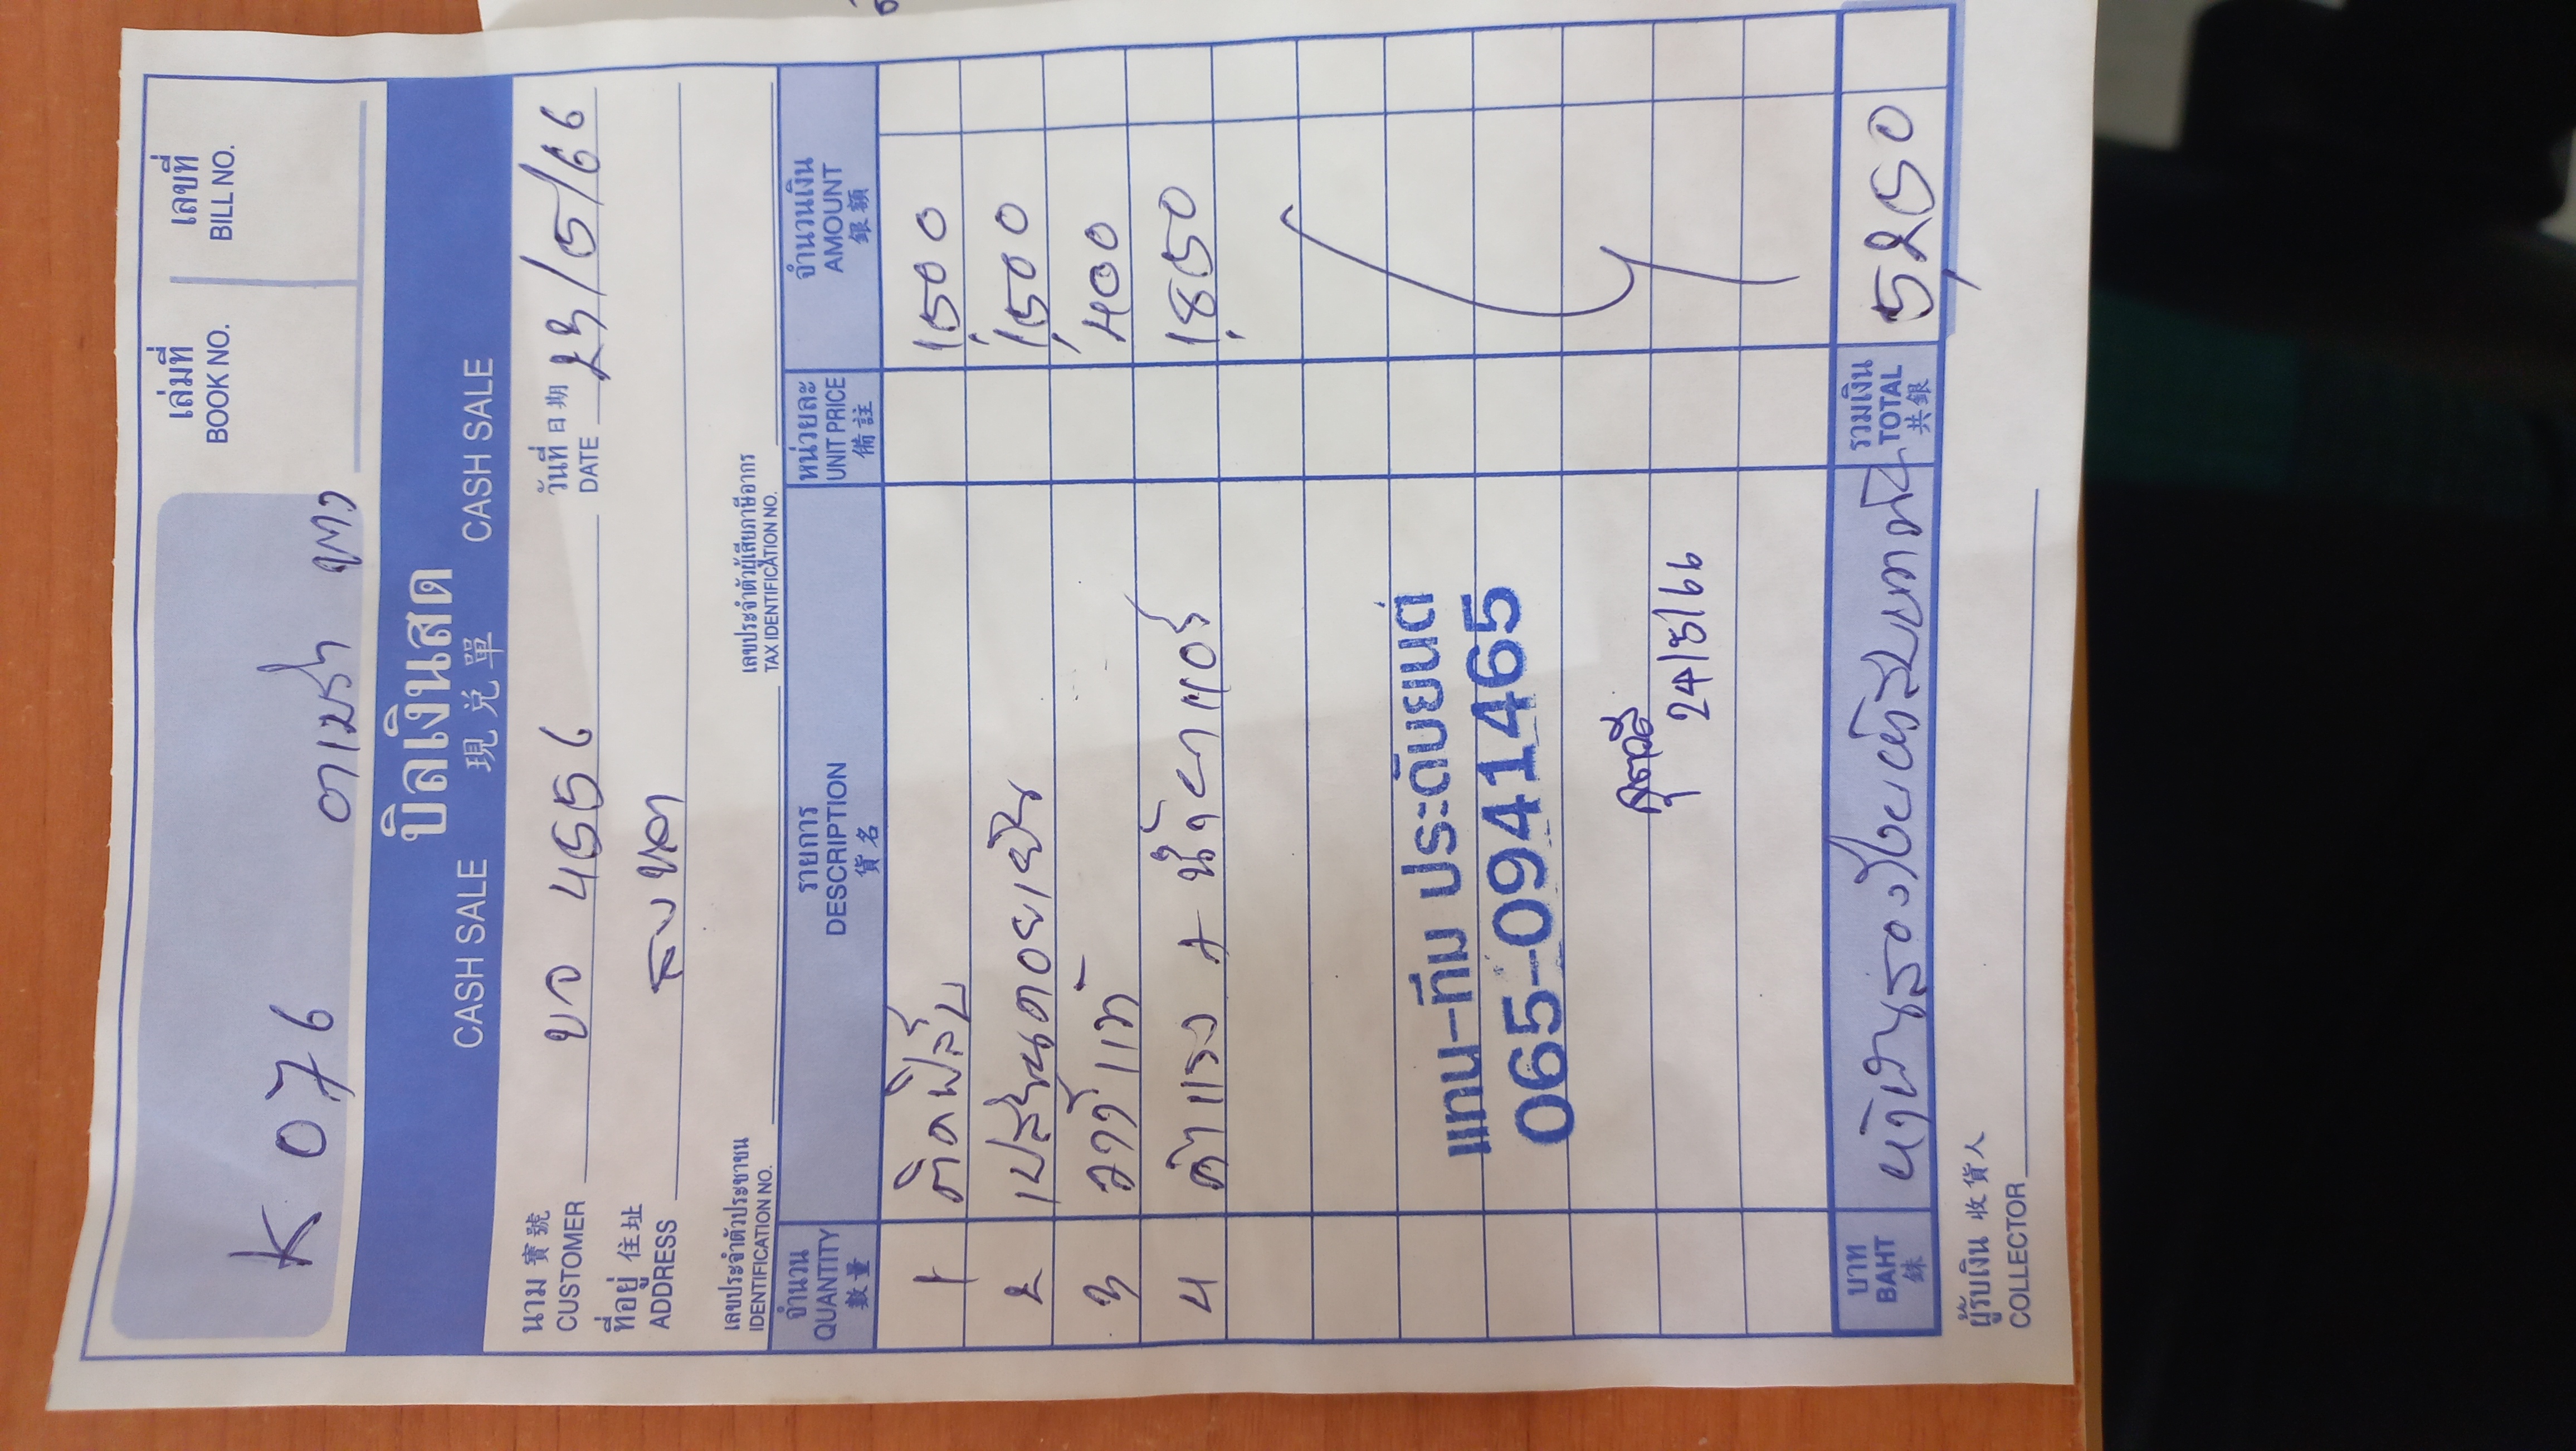 เล่มที่
BOOK NO.
เลขที่
BILL NO.
K 076
บิลเงินสด
CASH SALE 現兌單 CASH SALE
นาม 寶號
CUSTOMER
บจ 4556
วันที่ 日期
DATE
23/5/66
ที่อยู่ 住址
ADDRESS
เลขประจำตัวประชาชน
IDENTIFICATION NO.
เลขประจำตัวผู้เสียภาษีอากร
TAX IDENTIFICATION NO.
จำนวน รายการ หน่วยละ จำนวนเงิน
QUANTITY DESCRIPTION UNIT PRICE AMOUNT
數量 貨名 備註 銀額
1 ติดฟิล์ม 1,500
2 เปลี่ยนคอยเย็น 1,500
3 400
4 ค่าแรง + น้ำยาแอร์ 1,850
แทน-ทีม ประดับยนต์
065-0941465
24/5/66
บาท
BAHT
銖
ห้าพันสองร้อยห้าสิบบาท
รวมเงิน
TOTAL
共銀
5,250
ผู้รับเงิน 收貨人
COLLECTOR